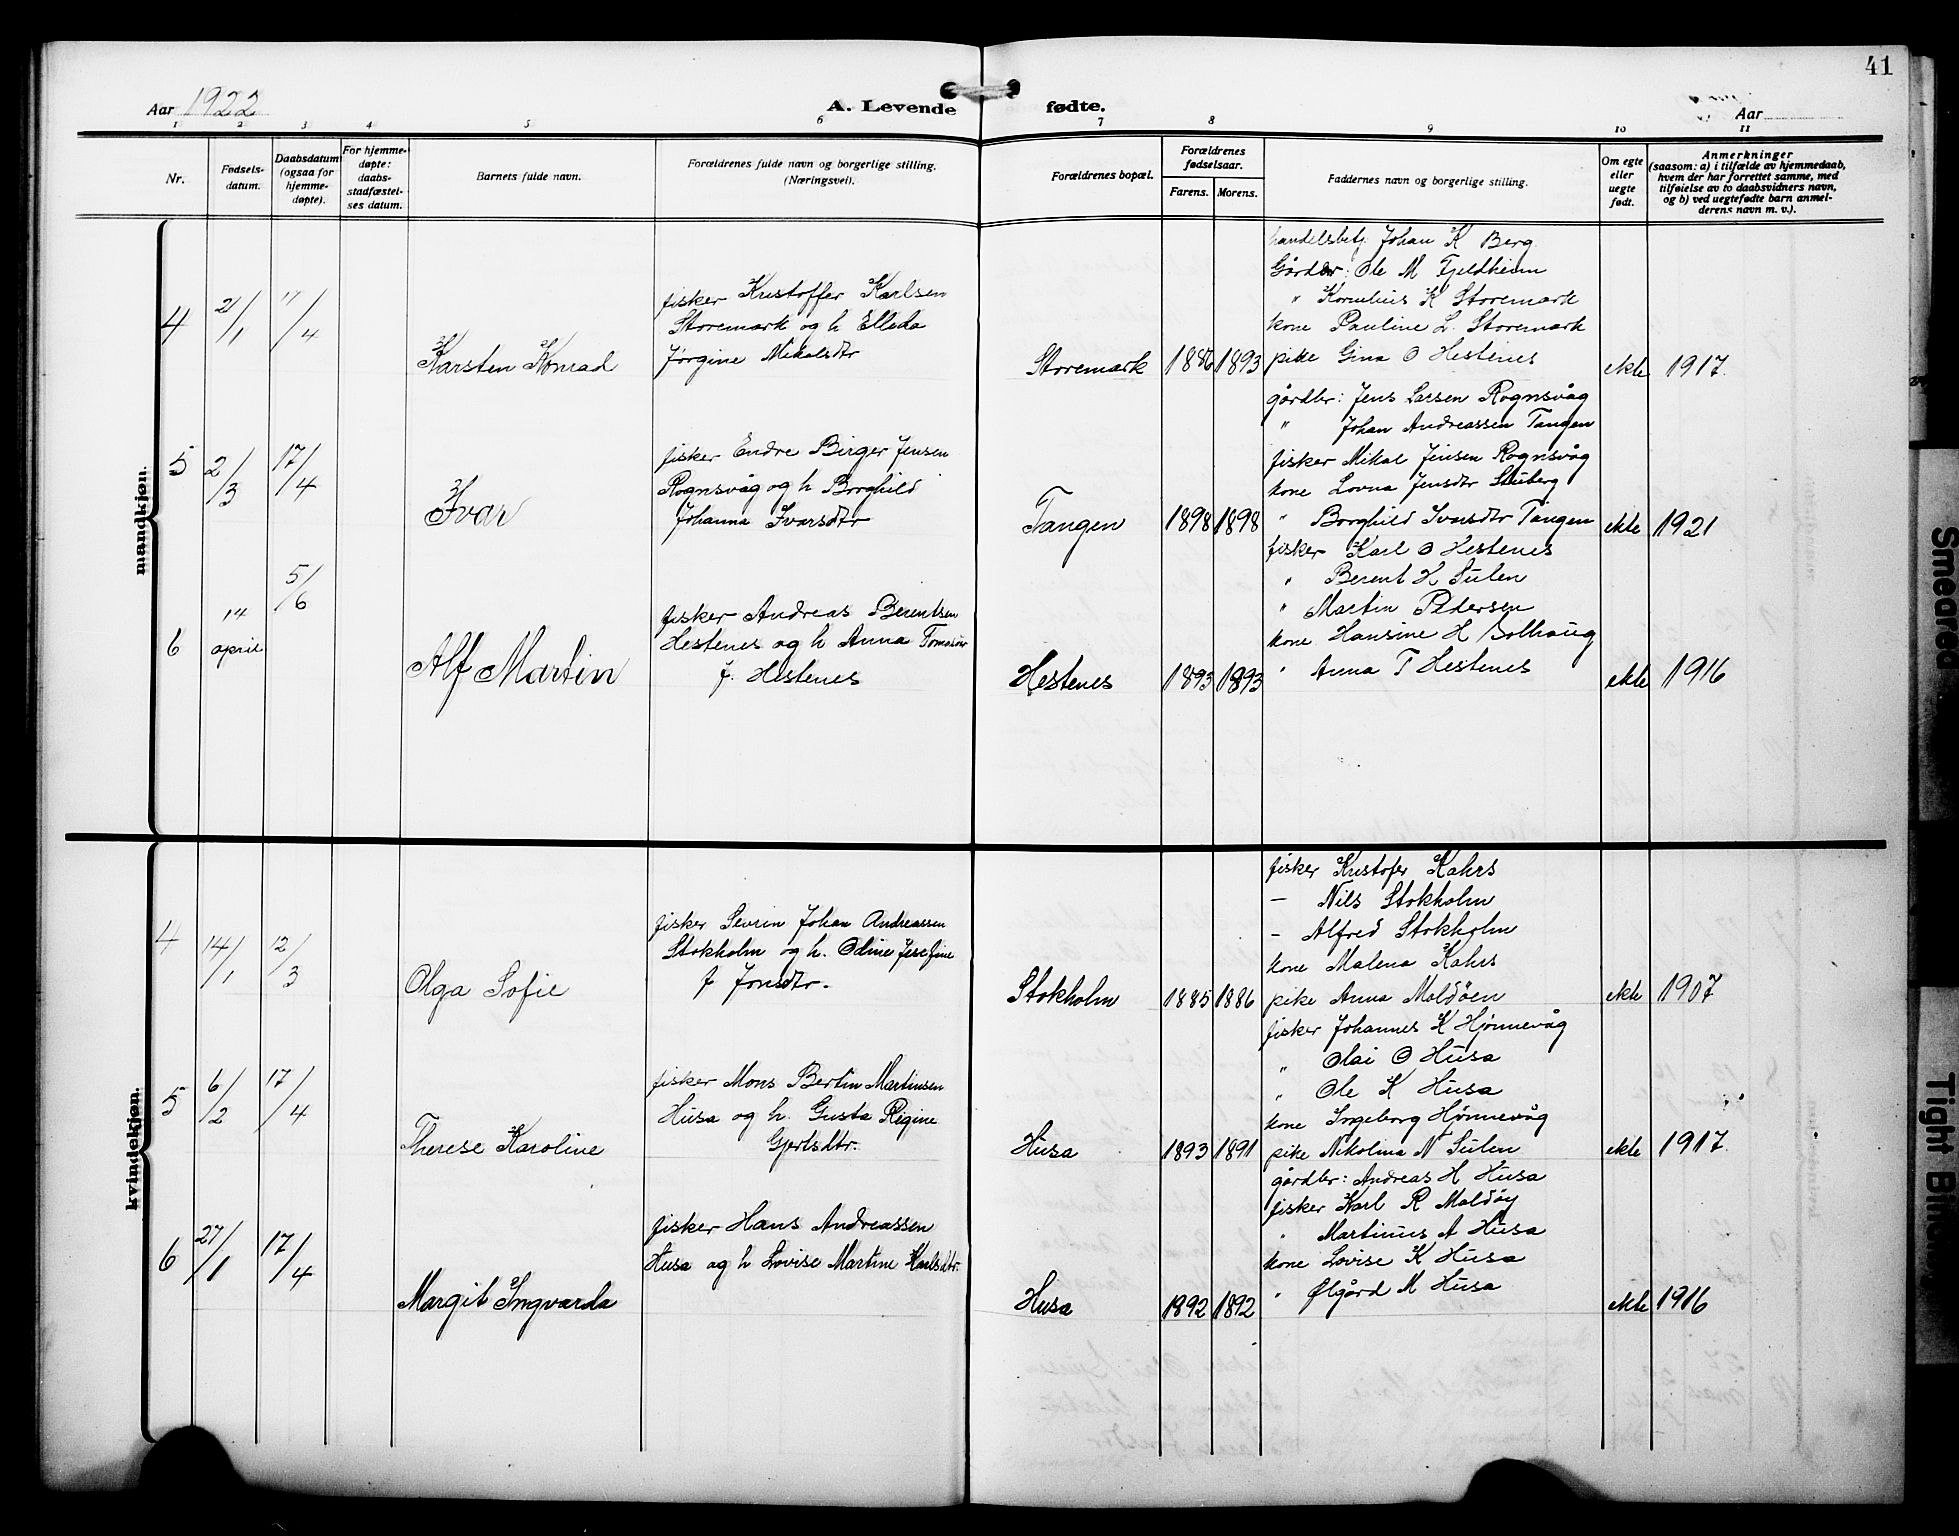 41
Aar 1922
A. Levende fødte.
Aar
1 2 3 4 5 6 7 8 9 10 11
Nr.
Fødsels-
datum.
Daabsdatum
(ogsaa for
hjemme-
døpte).
For hjemme-
døpte:
daabs-
stadfæstel-
ses datum.
Barnets fulde navn.
Forældrenes fulde navn og borgerlige stilling.
(Næringsvei).
Forældrenes bopæl.
Forældrenes
fødselsaar.
Farens. Morens.
Faddernes navn og borgerlige stilling.
Om egte
eller
uegte
født.
Anmerkninger
(saasom: a) i tilfælde av hjemmedaab,
hvem der har forrettet samme, med
tilføielse av to daabsvidners navn,
og b) ved uegtefødte barn anmel-
derens navn m. v.).
mandkjøn.
4
2/1
17/4
Karsten Konrad
fisker Kristoffer Karlsen
Storemark og h Elleda
Jørgine Mikalsdtr
Storemark
1886 1893
handelsbetj Johan K Berg
Gårdbr: Ole M Fjeldheim
" Kornelius K Storemark
kone Pauline L. Storemark
pike Gina O Hestenes
ekte
1917.
5
2/3
17/4
Ivar
fisker Endre Birger Jensen
Rognsvåg og h Borghild
Johanna Ivarsdtr
Tangen
1898 1898
gårdbr: Jens Larsen Rognsvåg
" Johan Andreassen Tangen
fisker Mikal Jensen Rognsvåg
kone Lovna Jensdtr
" Borghild Ivarsdtr Tangen
ekte
1921
6
14
april
5/6
Alf Martin
fisker Andreas Berentsen
Hestenes og h Anna
f. Hestenes
Hestenes
1893 1893
fisker Karl O Hestenes
" Berent H Sulen
" Martin Pedersen
kone Hansine H Solhaug
" Anna T Hestenes
ekte
1916
kvindekjøn.
4
14/1
12/3
Olga Sofie
fisker Sevrin Johan Andreassen
Stokholm og h. Oline Josefine
f Jonsdtr.
Stokholm
1885 1886
fisker Kristofer Kahrs
— Nils Stokholm
— Alfred Stokholm
kone Malena Kahrs
pike Anna Moldøen
ekte
1907
5
6/2
17/4
Therese Karoline
fisker Mons Bertin Martinsen
Husa og h. Gusta Regine
Gjertsdtr.
Husa
1893 1891
fisker Johannes K Hjønnevåg
" Olai O Husa
" Ole K Husa
kone Ingeborg Hjønnevåg
pike Nikolina N Sulen
ekte
1917.
6
27/1
17/4
Margit Ingvarda
fisker Hans Andreassen
Husa og h Lovise Martine Karlsdtr.
Husa
1892 1892
gårdbr: Andreas H Husa
fisker Karl R Moldøy
" Martinus A Husa
kone Lovise K Husa
" Ølgård M Husa
ekte
1916
Smeared
Tight Bin